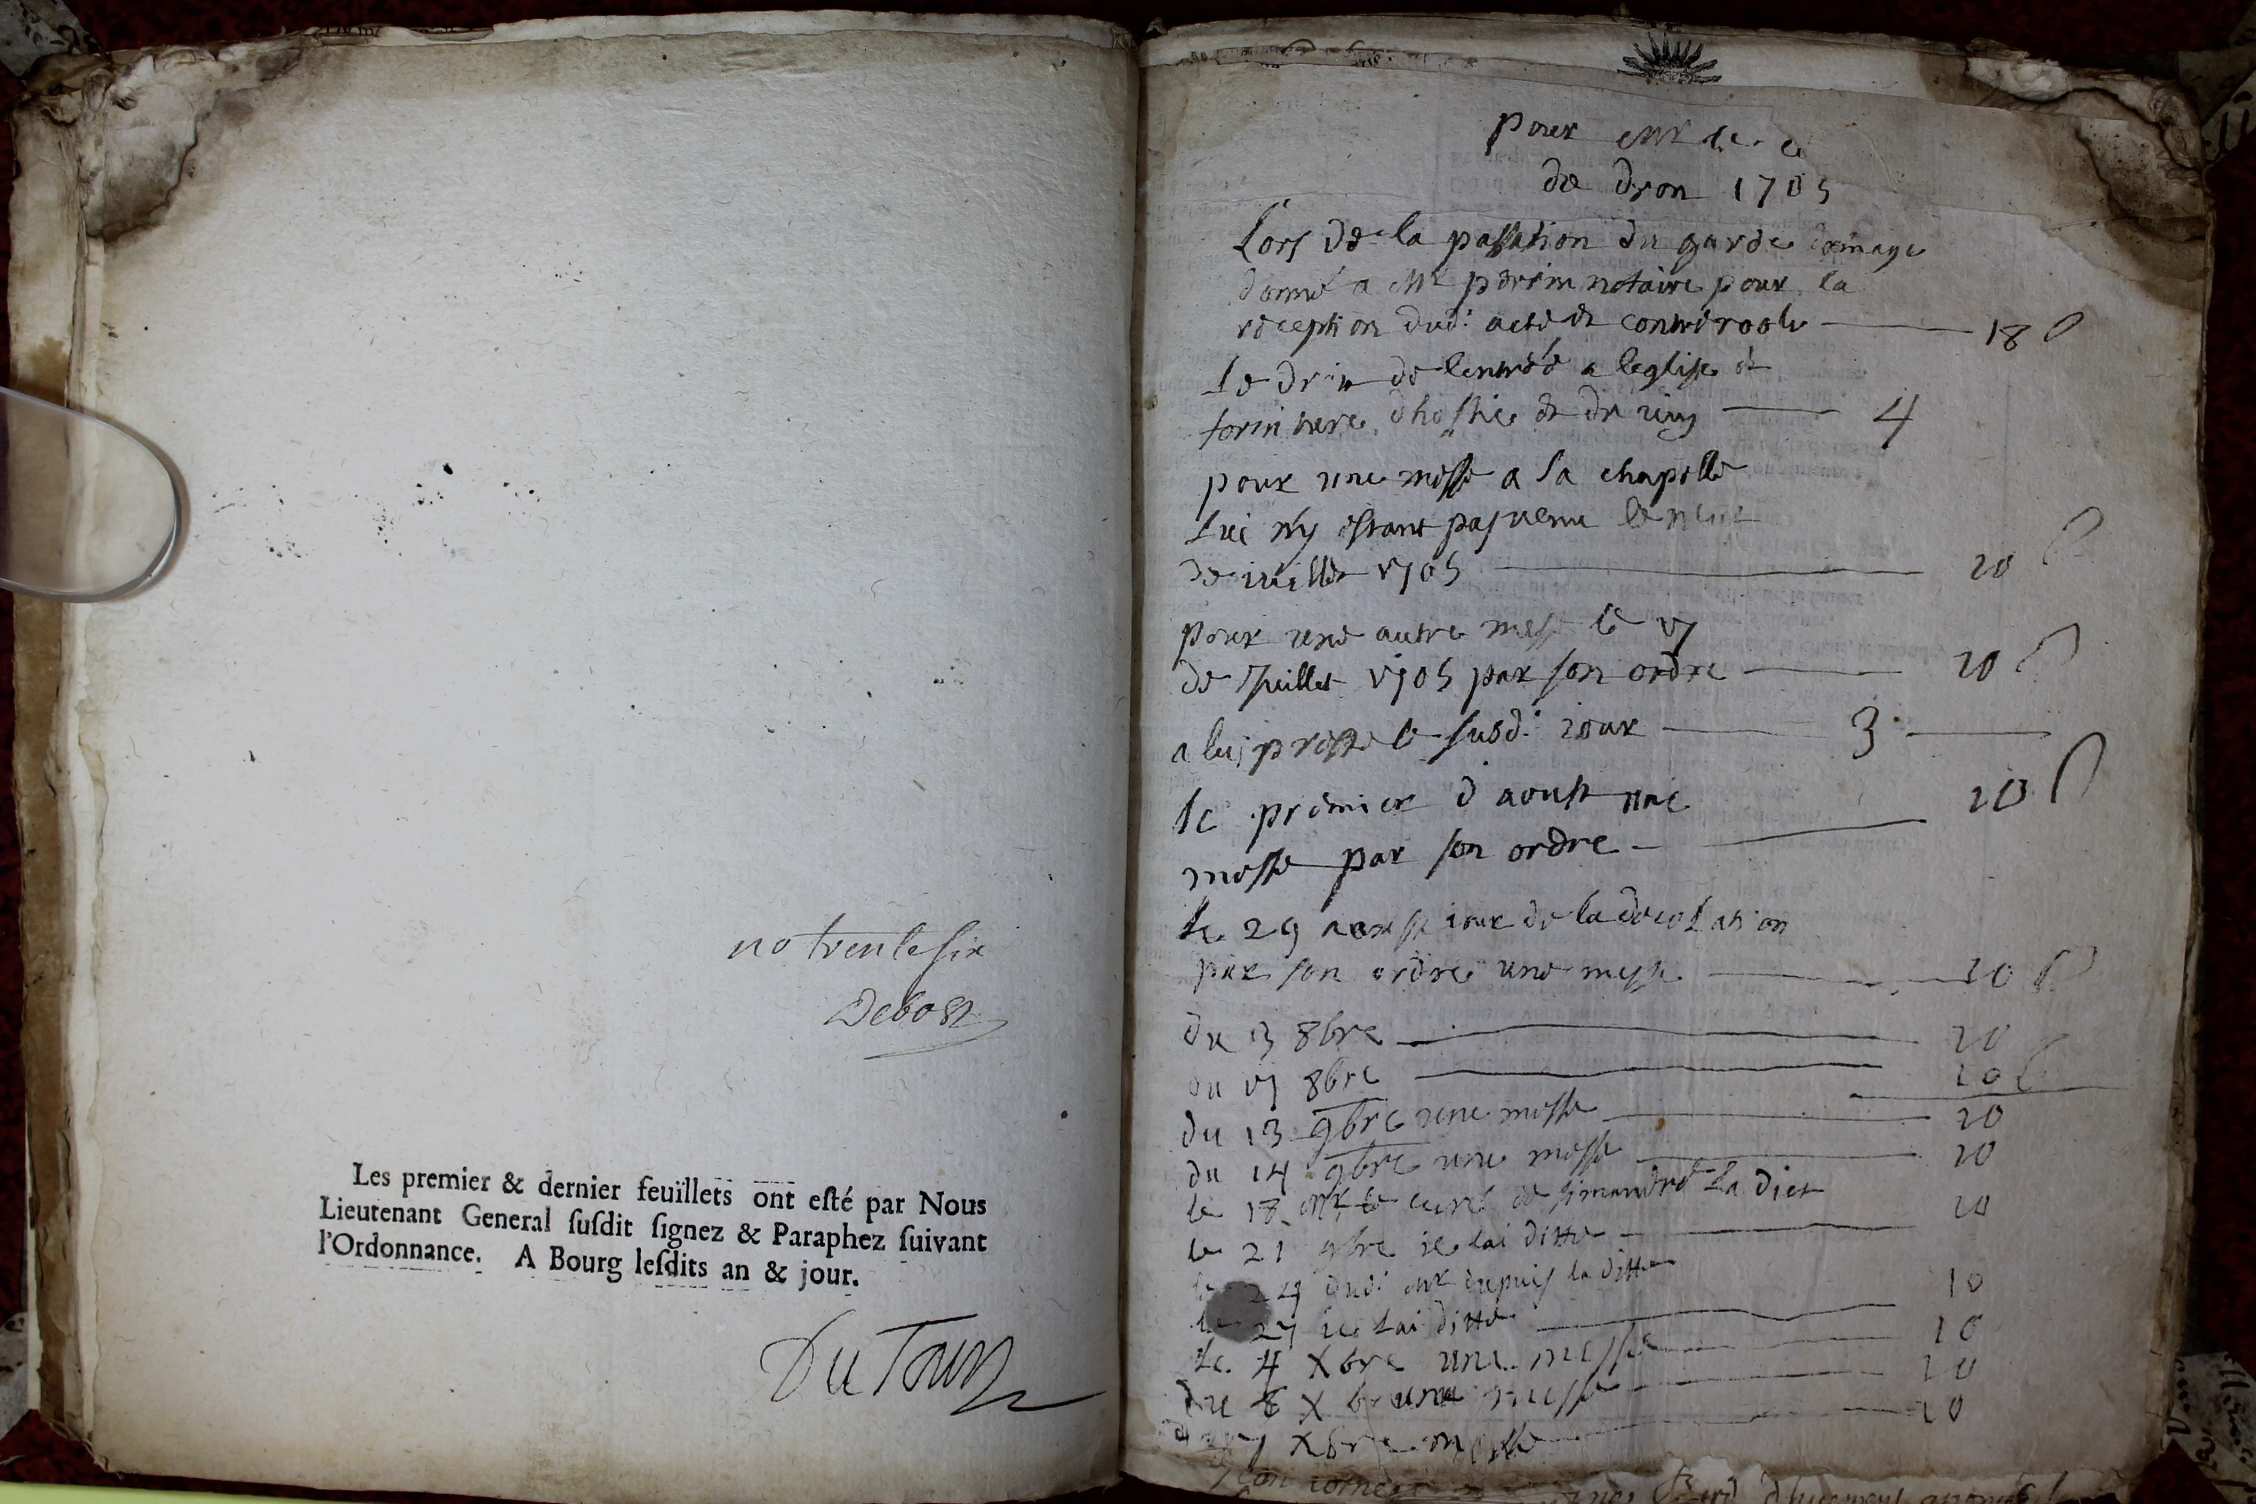 no trente six
Debost
Les premier & dernier feuillets ont esté par Nous
Lieutenant General susdit signez & Paraphez suivant
l'Ordonnance. A Bourg lesdits an & jour.
DuTour
pour Mr de
de dron 1705
Lors de la passation du garde domage
donné a Mr perrin notaire pour la
reception dud: acte et controole 18
Le droit de lentrée a leglise et
forniture dhostie et de vin 4
pour une messe a sa chapelle
Lui n'y estant pas venu le
de iuillet 1705 20
pour une autre messe le
de Juillet 1705 par son ordre 20
a lui presté le susd: iour 3
le premier d'aoust une 10
messe par son ordre
Le 29 aoust iour de la decolation
par son ordre une messe 10
du 13 8bre 20
du 8bre 20
du 13 9bre une messe 20
du 14 9bre une messe 20
le 18 Mr le curé de simandre La dict
le 21 9bre ie lai ditte 20
24 dud: Mr dupuis la ditte
le 27 ie Lai ditte 10
Le 4 Xbre une messe 10
Du 8 Xbre une messe 20
Xbre messe 20